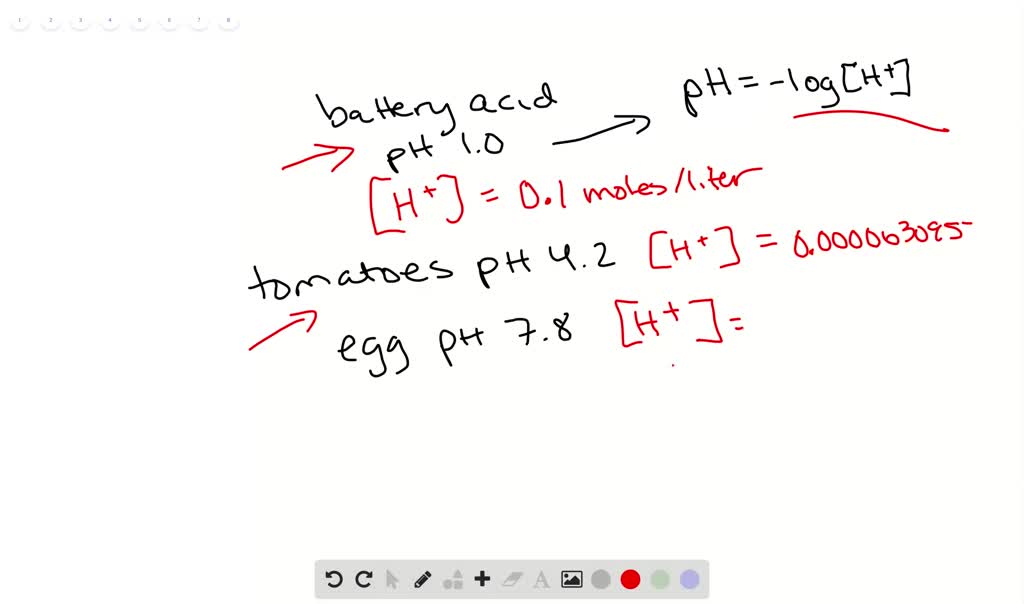 1 2 3 4 5 6 7 8
battery acid
pH 1.0 → pH = -log[H+]
[H+] = 0.1 moles/liter
tomatoes pH 4.2 [H+] = 0.000063095
egg pH 7.8 [H+] =
A